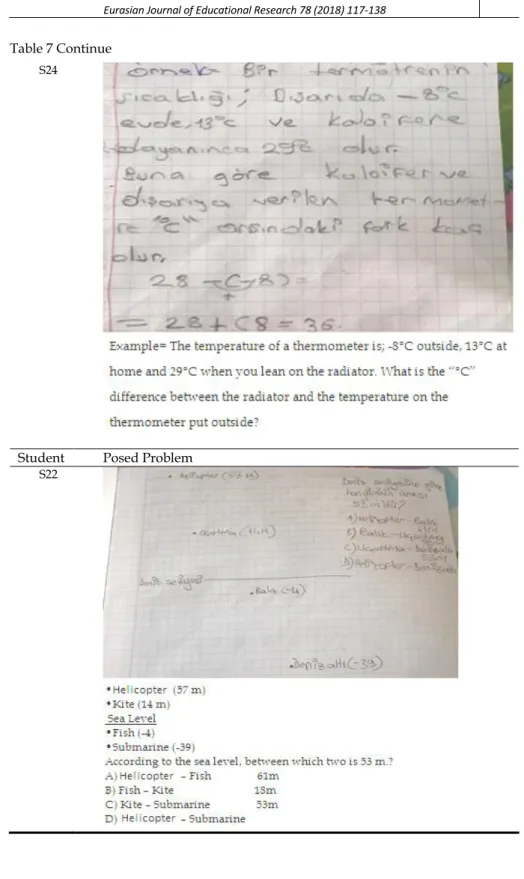 Eurasian Journal of Educational Research 78 (2018) 117-138
Table 7 Continue
S24
Örnek Bir termotrenin
sıcaklığı; Dışarıda -8°C
evde, 13°C ve kaloifere
dayanınca 29°C olur.
Buna göre kaloifer ve
dışarıya verilen termomet-
re "°C" arsındaki fark kaç
olur.
28 -(-8)=
+
= 28+(8 = 36.
Example= The temperature of a thermometer is; -8°C outside, 13°C at
home and 29°C when you lean on the radiator. What is the "°C"
difference between the radiator and the temperature on the
thermometer put outside?
Student Posed Problem
S22
• Helikopter (57 M)
• Uçurtma (14M)
Deniz seviyesi
• Balık (-4)
• Denizaltı (-39)
Deniz seviyesine göre
hangisinin arası
53 m'dir?
A) Helikopter - Balık
B) Balık - Uçurtma
C) Uçurtma - Denizaltı
53M
D) Helikopter - Denizaltı
• Helicopter (57 m)
• Kite (14 m)
Sea Level
• Fish (-4)
• Submarine (-39)
According to the sea level, between which two is 53 m.?
A) Helicopter - Fish 61m
B) Fish - Kite 18m
C) Kite - Submarine 53m
D) Helicopter - Submarine